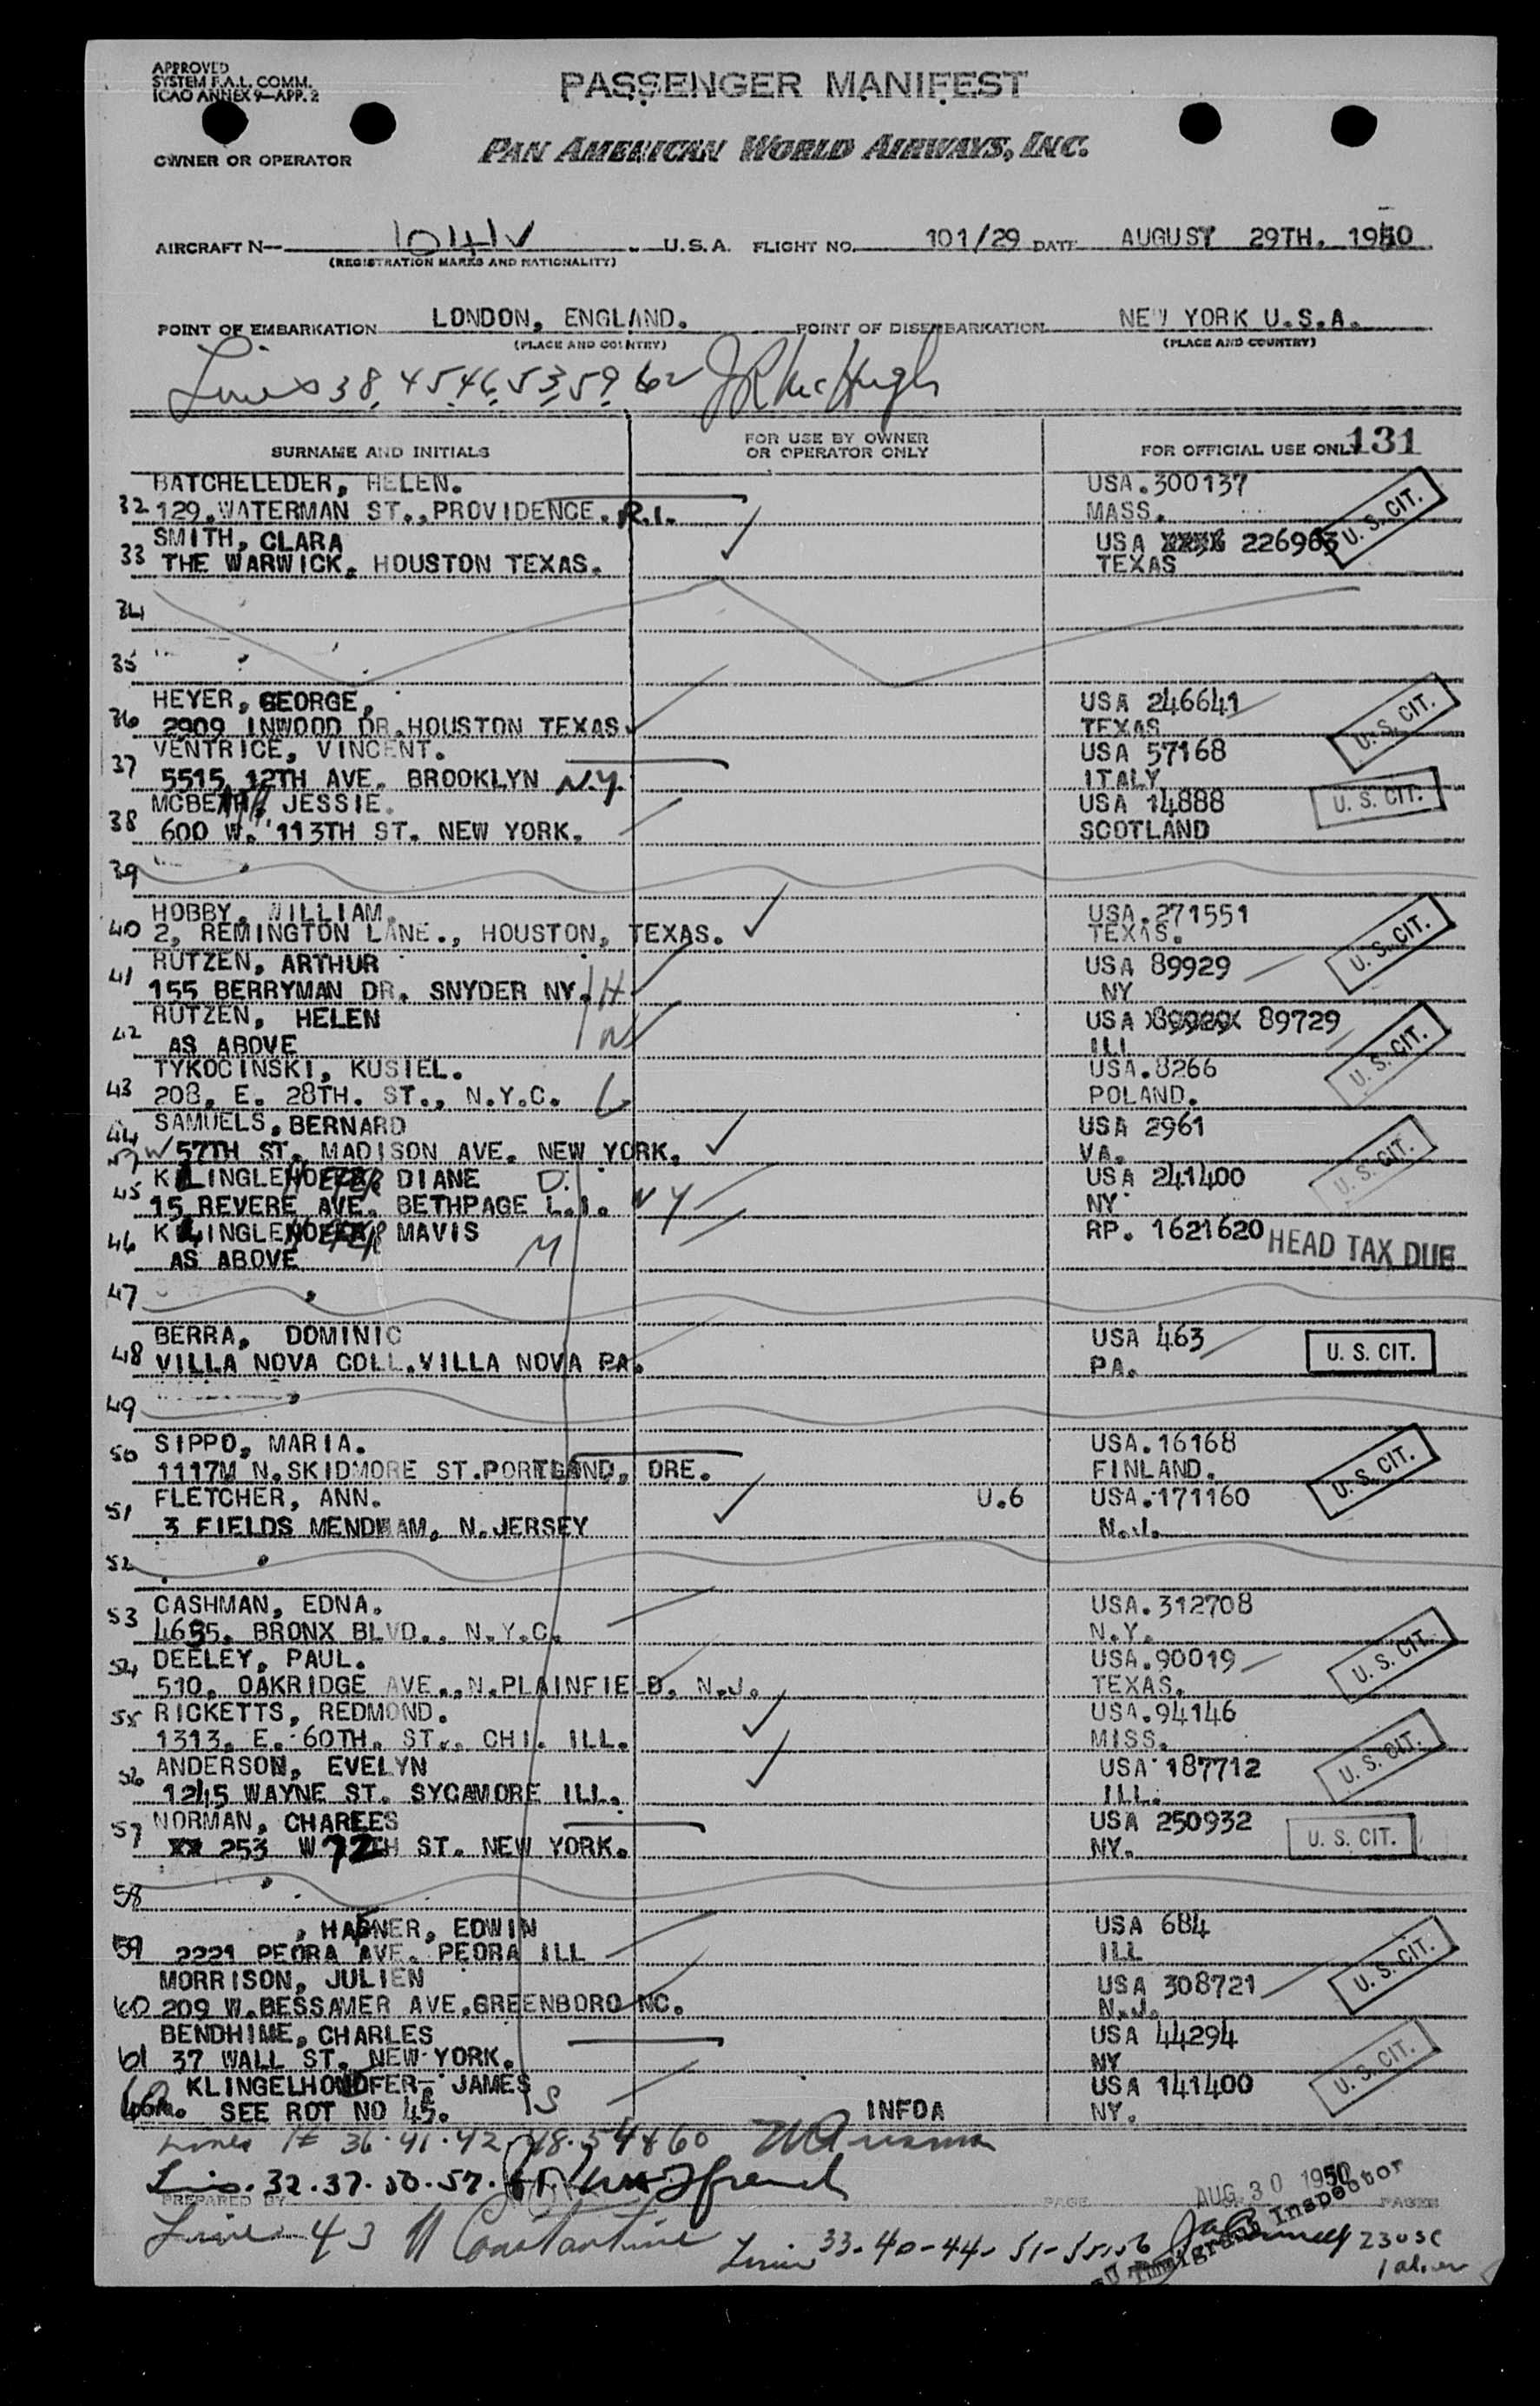 APPROVED
SYSTEM F.A.L. COMM.
ICAO ANNEX 9—APP. 2
PASSENGER MANIFEST
OWNER OR OPERATOR
PAN AMERICAN WORLD AIRWAYS, INC.
AIRCRAFT N— 1041V U.S.A. FLIGHT NO. 101/29 DATE AUGUST 29TH. 1950
(REGISTRATION MARKS AND NATIONALITY)
POINT OF EMBARKATION LONDON, ENGLAND. POINT OF DISEMBARKATION NEW YORK U.S.A.
(PLACE AND COUNTRY) (PLACE AND COUNTRY)
Lines 38, 45, 46, 53, 59, 62 JR McHugh
SURNAME AND INITIALS FOR USE BY OWNER OR OPERATOR ONLY FOR OFFICIAL USE ONLY 131
BATCHELEDER, HELEN. USA.300137
32 129.WATERMAN ST.,PROVIDENCE. R.I. MASS. U. S. CIT.
SMITH, CLARA USA 226963
33 THE WARWICK, HOUSTON TEXAS. TEXAS
34
35
HEYER, GEORGE, USA 246641
36 2909 INWOOD DR.HOUSTON TEXAS TEXAS U. S. CIT.
VENTRICE, VINCENT. USA 57168
37 5515 12TH AVE. BROOKLYN N.Y. ITALY
MCBETH, JESSIE. USA 14888 U. S. CIT.
38 600 W. 113TH ST. NEW YORK. SCOTLAND
39
HOBBY, WILLIAM. USA.271551
40 2, REMINGTON LANE., HOUSTON, TEXAS. TEXAS. U. S. CIT.
RUTZEN, ARTHUR USA 89929
41 155 BERRYMAN DR. SNYDER NY. H NY
RUTZEN, HELEN W USA 89729
42 AS ABOVE ILL U. S. CIT.
TYKOCINSKI, KUSIEL. USA.8266
43 208, E. 28TH. ST., N.Y.C. POLAND.
SAMUELS, BERNARD USA 2961
44 57TH ST. MADISON AVE. NEW YORK. VA. U. S. CIT.
KLINGLEHOEFER DIANE D. USA 241400
45 15 REVERE AVE. BETHPAGE L.I. NY NY
KLINGLEHOEFER MAVIS M RP. 1621620 HEAD TAX DUE
46 AS ABOVE
47
BERRA, DOMINIC USA 463
48 VILLA NOVA COLL.VILLA NOVA PA. PA. U. S. CIT.
49
SIPPO, MARIA. USA.16168
50 1117M N.SKIDMORE ST.PORTLAND, ORE. FINLAND. U. S. CIT.
FLETCHER, ANN. U.6 USA.171160
51 3 FIELDS MENDHAM, N.JERSEY N.J.
52
CASHMAN, EDNA. USA.312708
53 4635. BRONX BLVD., N.Y.C. N.Y.
DEELEY, PAUL. USA.90019 U. S. CIT.
54 510, OAKRIDGE AVE.,N.PLAINFIELD, N.J. TEXAS.
RICKETTS, REDMOND. USA.94146
55 1313, E. 60TH. ST., CHI. ILL. MISS.
ANDERSON, EVELYN USA 187712 U. S. CIT.
56 1245 WAYNE ST. SYCAMORE ILL. ILL.
NORMAN, CHARLES USA 250932
57 XX 253 W 72TH ST. NEW YORK. NY. U. S. CIT.
58
, HAFNER, EDWIN USA 684
59 2221 PEORA AVE. PEORA ILL ILL U. S. CIT.
MORRISON, JULIEN USA 308721
60 209 W.BESSAMER AVE.GREENBORO NC. N.J.
BENDHIME, CHARLES USA 44294
61 37 WALL ST. NEW YORK. NY U. S. CIT.
KLINGELHOOFER- JAMES S USA 141400
SEE ROT NO 45. INFOA NY.
Lines # 36-41-42-48-54 & 60
Lines. 32-37-50-57-61
PREPARED BY PAGE PAGES
AUG 30 1950
Immigrant Inspector
Line 43 N Constantine
Lines 33-40-44-51-55-56
23 USC
1 alien